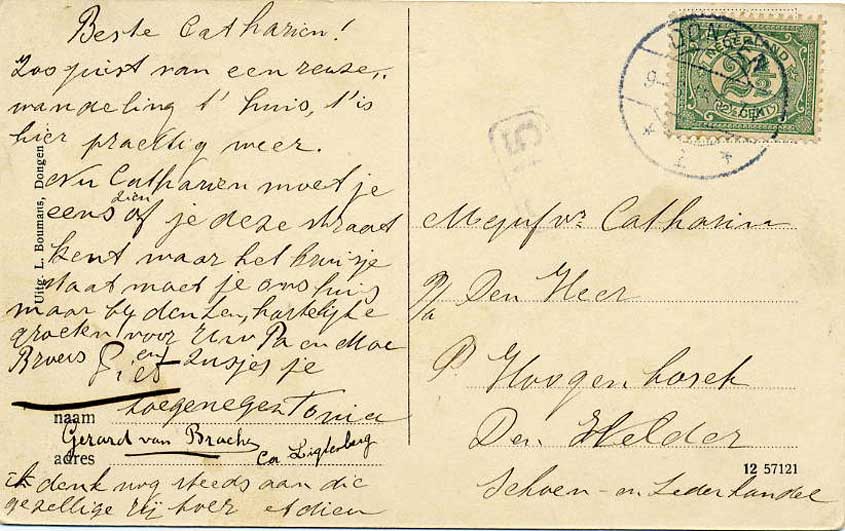 Beste Catharien!
Zoo juist van een reuze-
wandeling t'huis, 't is
hier prachtig weer.
Nu Catharien moet je
eens zien of je deze straat
kent waar het kruisje
staat moet je ons huis
maar bij denken, hartelijke
groeten voor Uw Pa en Moe
Broers en Zusjes je
Piet
toegenegen Tonia
naam
Gerard van
adres
Co Ligtenberg
ik denk nog steeds aan die
gezellige
Uitg. L. Boumans, Dongen
DONGEN
NEDERLAND
2½
2½ CENT
15
Mejufvr Catharien
P/a Den Heer
P. Hoogenbosch
Den Helder
Schoen- en Lederhandel
12 57121